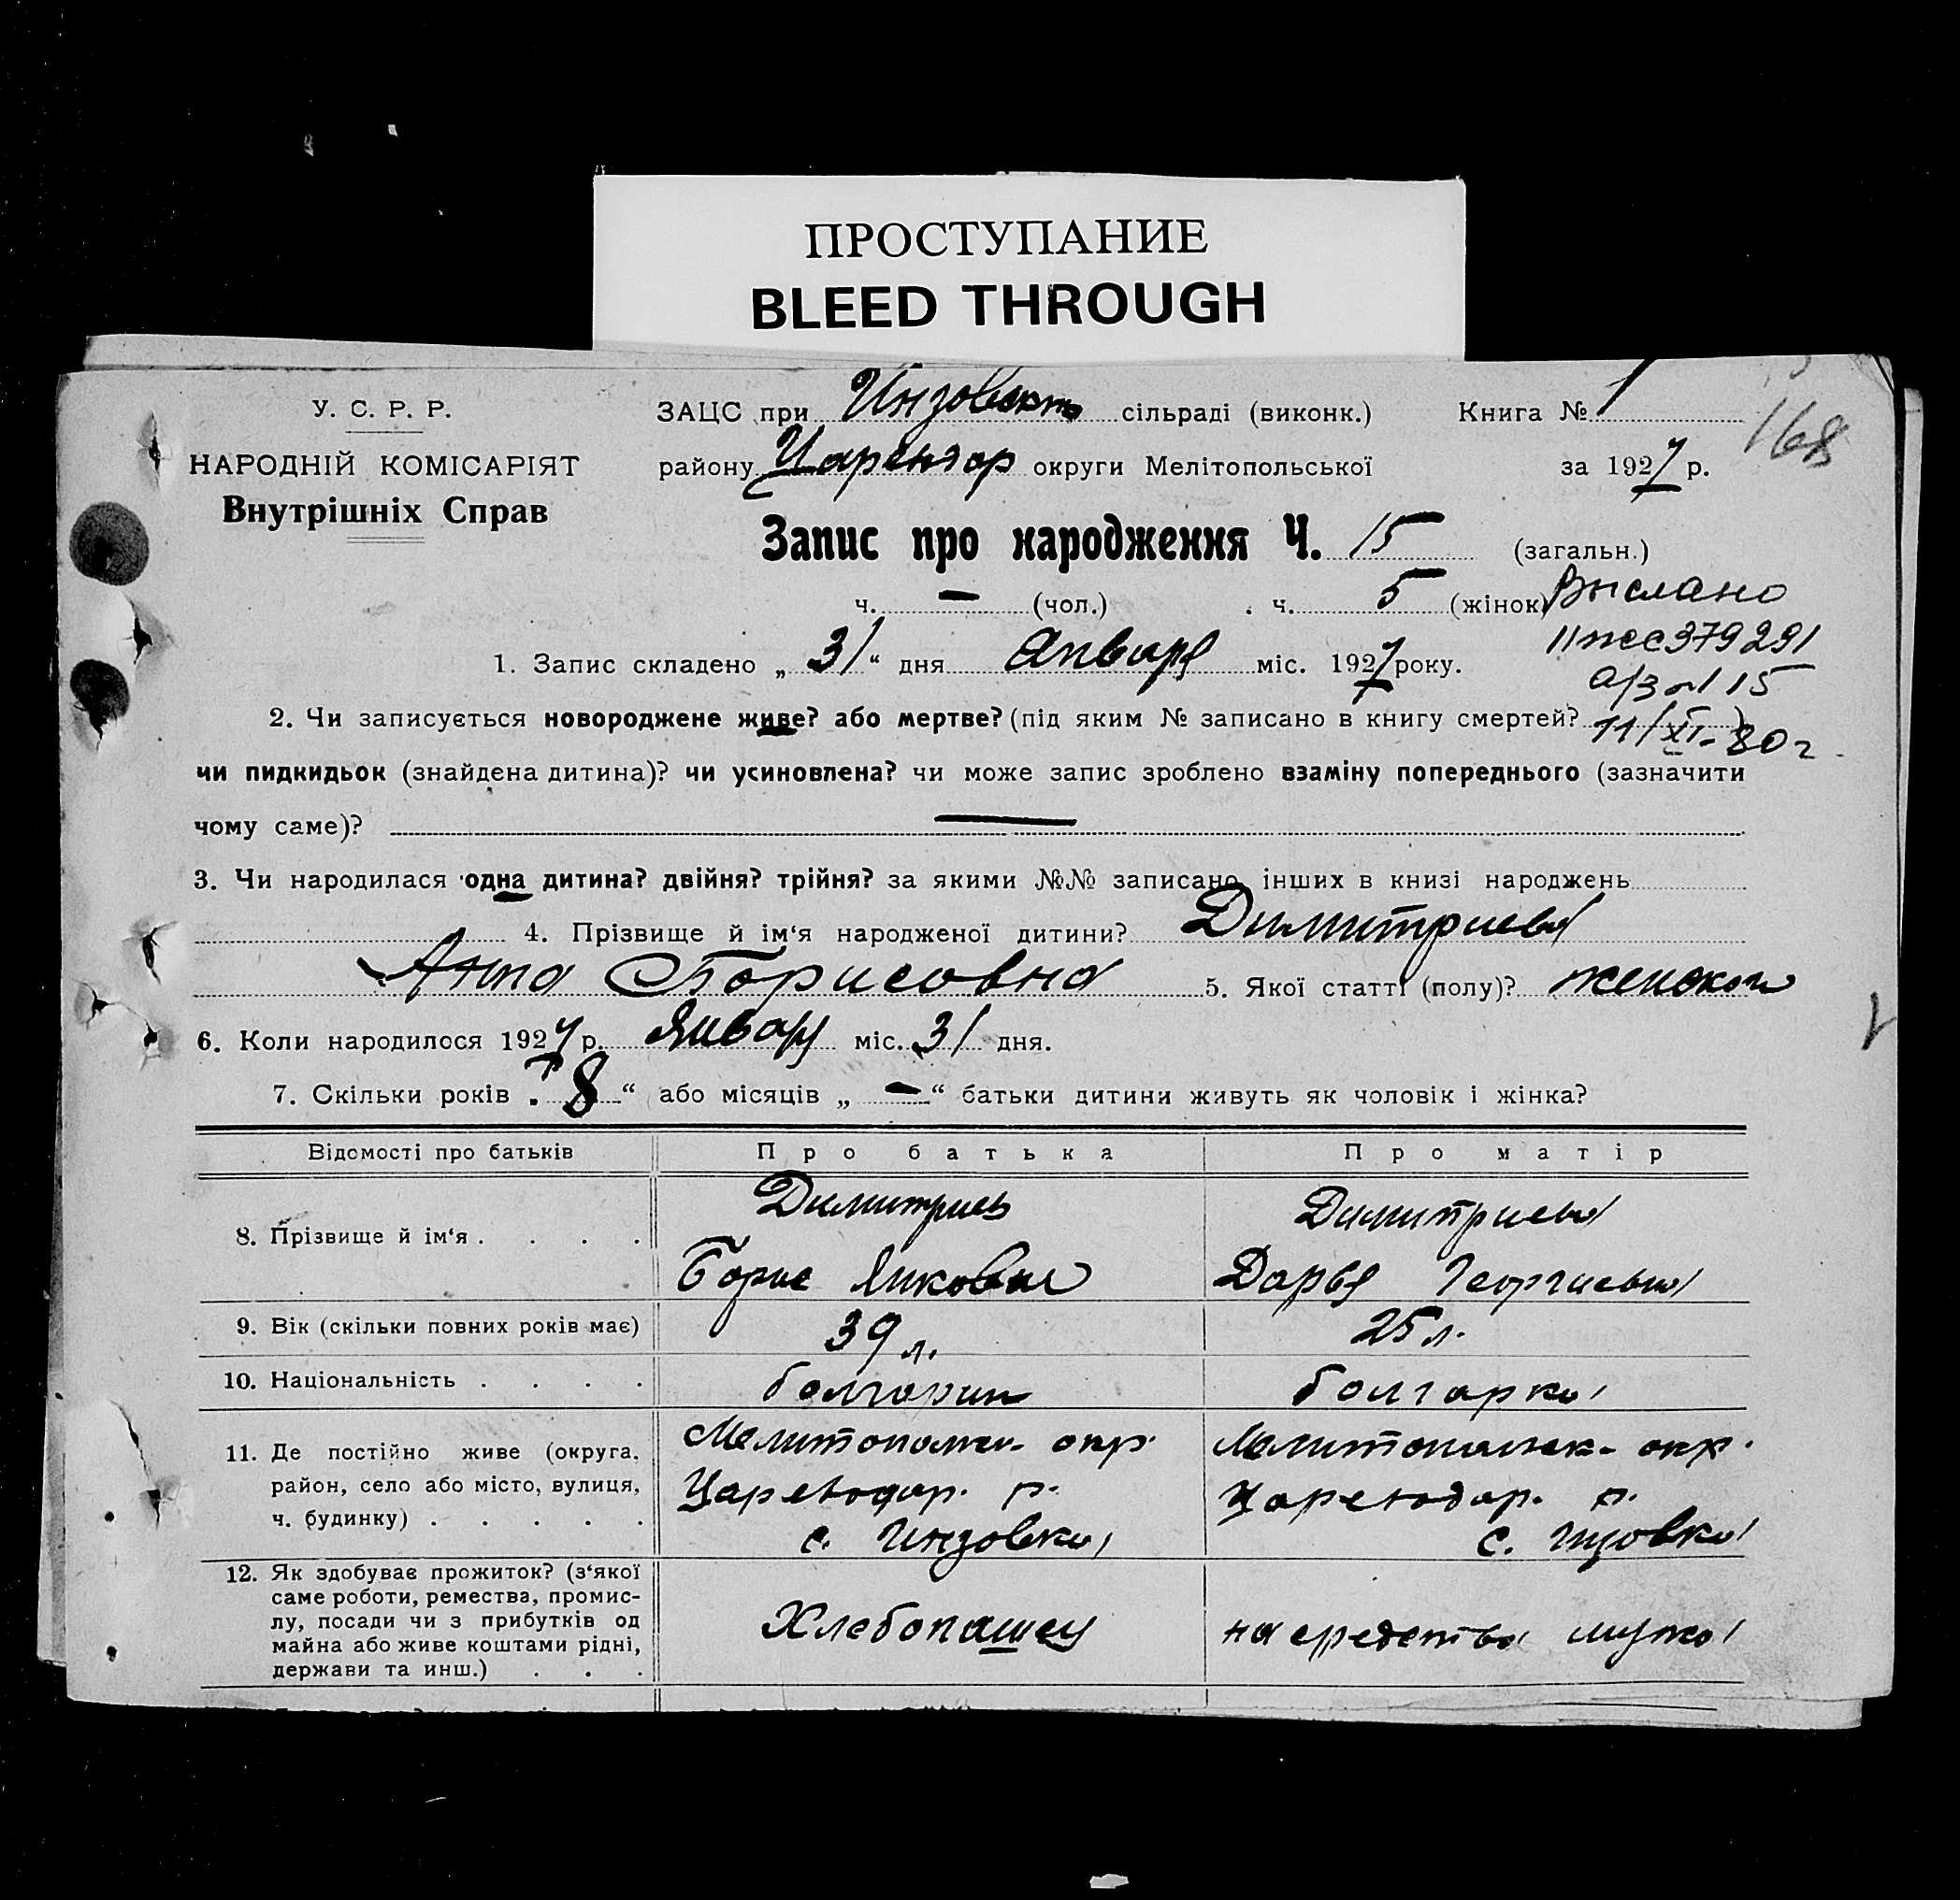 ПРОСТУПАНИЕ
BLEED THROUGH
У. С. Р. Р.
НАРОДНІЙ КОМІСАРІЯТ
Внутрішніх Справ
ЗАЦС при Инзовск сільраді (виконк.) Книга № 1
району Царевдар округи Мелітопольської за 1927 р.
168
Запис про народження Ч. 15 (загальн.)
ч. — (чол.) ч. 5 (жінок)
Выслано
II жс 379291
а/з № 15
11/XI-80г
1. Запис складено „31“ дня Января міс. 1927 року.
2. Чи записується новороджене живе? або мертве? (під яким № записано в книгу смертей?)
чи пидкидьок (знайдена дитина)? чи усиновлена? чи може запис зроблено взаміну попереднього (зазначити
чому саме)? —
3. Чи народилася одна дитина? двійня? трійня? за якими №№ записано інших в книзі народжень
4. Прізвище й ім‘я народженої дитини? Димитриева
Анна Борисовна 5. Якої статті (полу)? женской
6. Коли народилося 1927 р. Январ міс. 31 дня.
7. Скільки років „8“ або місяців „—“ батьки дитини живуть як чоловік і жінка?
Відомості про батьків Про батька Про матір
8. Прізвище й ім‘я . . . .
Димитриев
Борис Янкович
Димитриева
Дарья Георгиевна
9. Вік (скільки повних років має) 39 л. 25 л.
10. Національність . . . . болгарин болгарка
11. Де постійно живе (округа,
район, село або місто, вулиця,
ч. будинку) . . . . .
Мелитопольск. окр.
Цареводар. р.
с. Инзовка
Мелитопольск. окр.
Цареводар. р.
с. Инзовка
12. Як здобуває прожиток? (з‘якої
саме роботи, ремества, промис-
лу, посади чи з прибутків од
майна або живе коштами рідні,
держави та инш.) . . .
Хлебопашец
на средства мужа